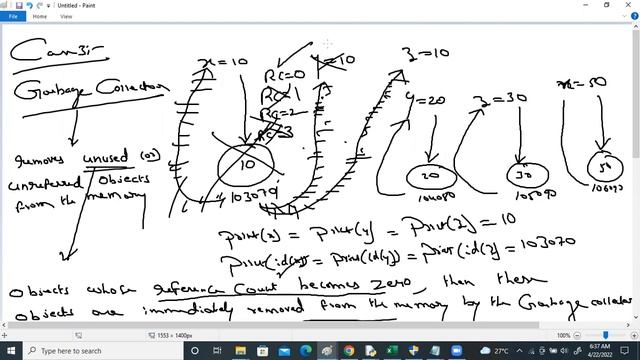 Untitled - Paint
File Home View
Can-3:-
Garbage Collector
removes unused (or)
unreferred objects
from the memory
x = 10
RC=0
RC=1
RC=2
RC=3
10
103070
y = 10
z = 10
y = 20
20
z = 30
30
x = 50
50
print(x) = print(y) = print(z) = 10
print(id(x)) = print(id(y)) = print(id(z)) = 103070
Objects whose reference count becomes zero, then these
objects are immediately removed from the memory by the Garbage collector
1553 × 1400px
100%
Type here to search
27°C
ENG
6:37 AM
4/22/2022